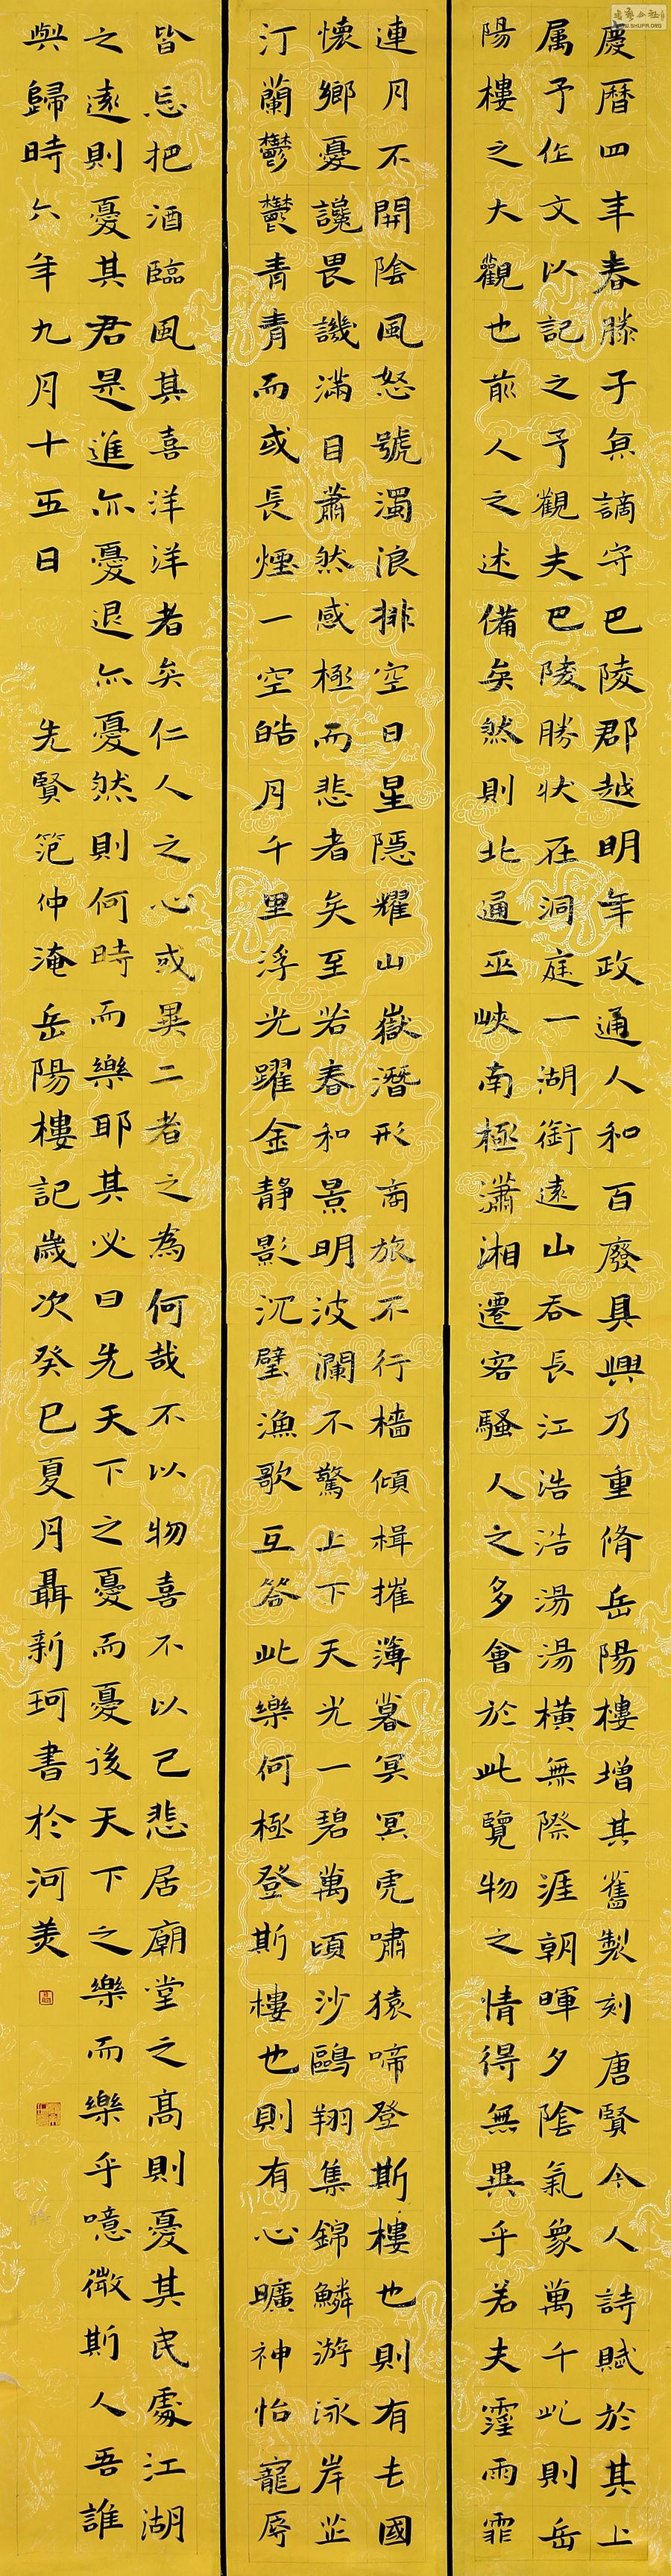 慶曆四年春滕子京謫守巴陵郡越明年政通人和百廢具興乃重脩岳陽樓增其舊製刻唐賢今人詩賦於其上
属予作文以記之予觀夫巴陵勝状在洞庭一湖銜遠山吞長江浩浩湯湯橫無際涯朝暉夕陰氣象萬千此則岳
陽樓之大觀也前人之述備矣然則北通巫峽南極瀟湘遷客騷人之多會於此覽物之情得無異乎若夫霪雨霏
連月不開陰風怒號濁浪排空日星隱耀山嶽潛形商旅不行檣傾楫摧薄暮冥冥虎嘯猿啼登斯樓也則有去國
懷鄉憂讒畏譏滿目蕭然感極而悲者矣至若春和景明波瀾不驚上下天光一碧萬頃沙鷗翔集錦鱗游泳岸芷
汀蘭鬱鬱青青而或長煙一空皓月千里浮光躍金靜影沉璧漁歌互答此樂何極登斯樓也則有心曠神怡寵辱
皆忘把酒臨風其喜洋洋者矣仁人之心或異二者之為何哉不以物喜不以己悲居廟堂之高則憂其民處江湖
之遠則憂其君是進亦憂退亦憂然則何時而樂耶其必曰先天下之憂而憂後天下之樂而樂乎噫微斯人吾誰
與歸時六年九月十五日 先賢范仲淹岳陽樓記歲次癸巳夏月聶新珂書於河美
WWW.SHUFA.ORG